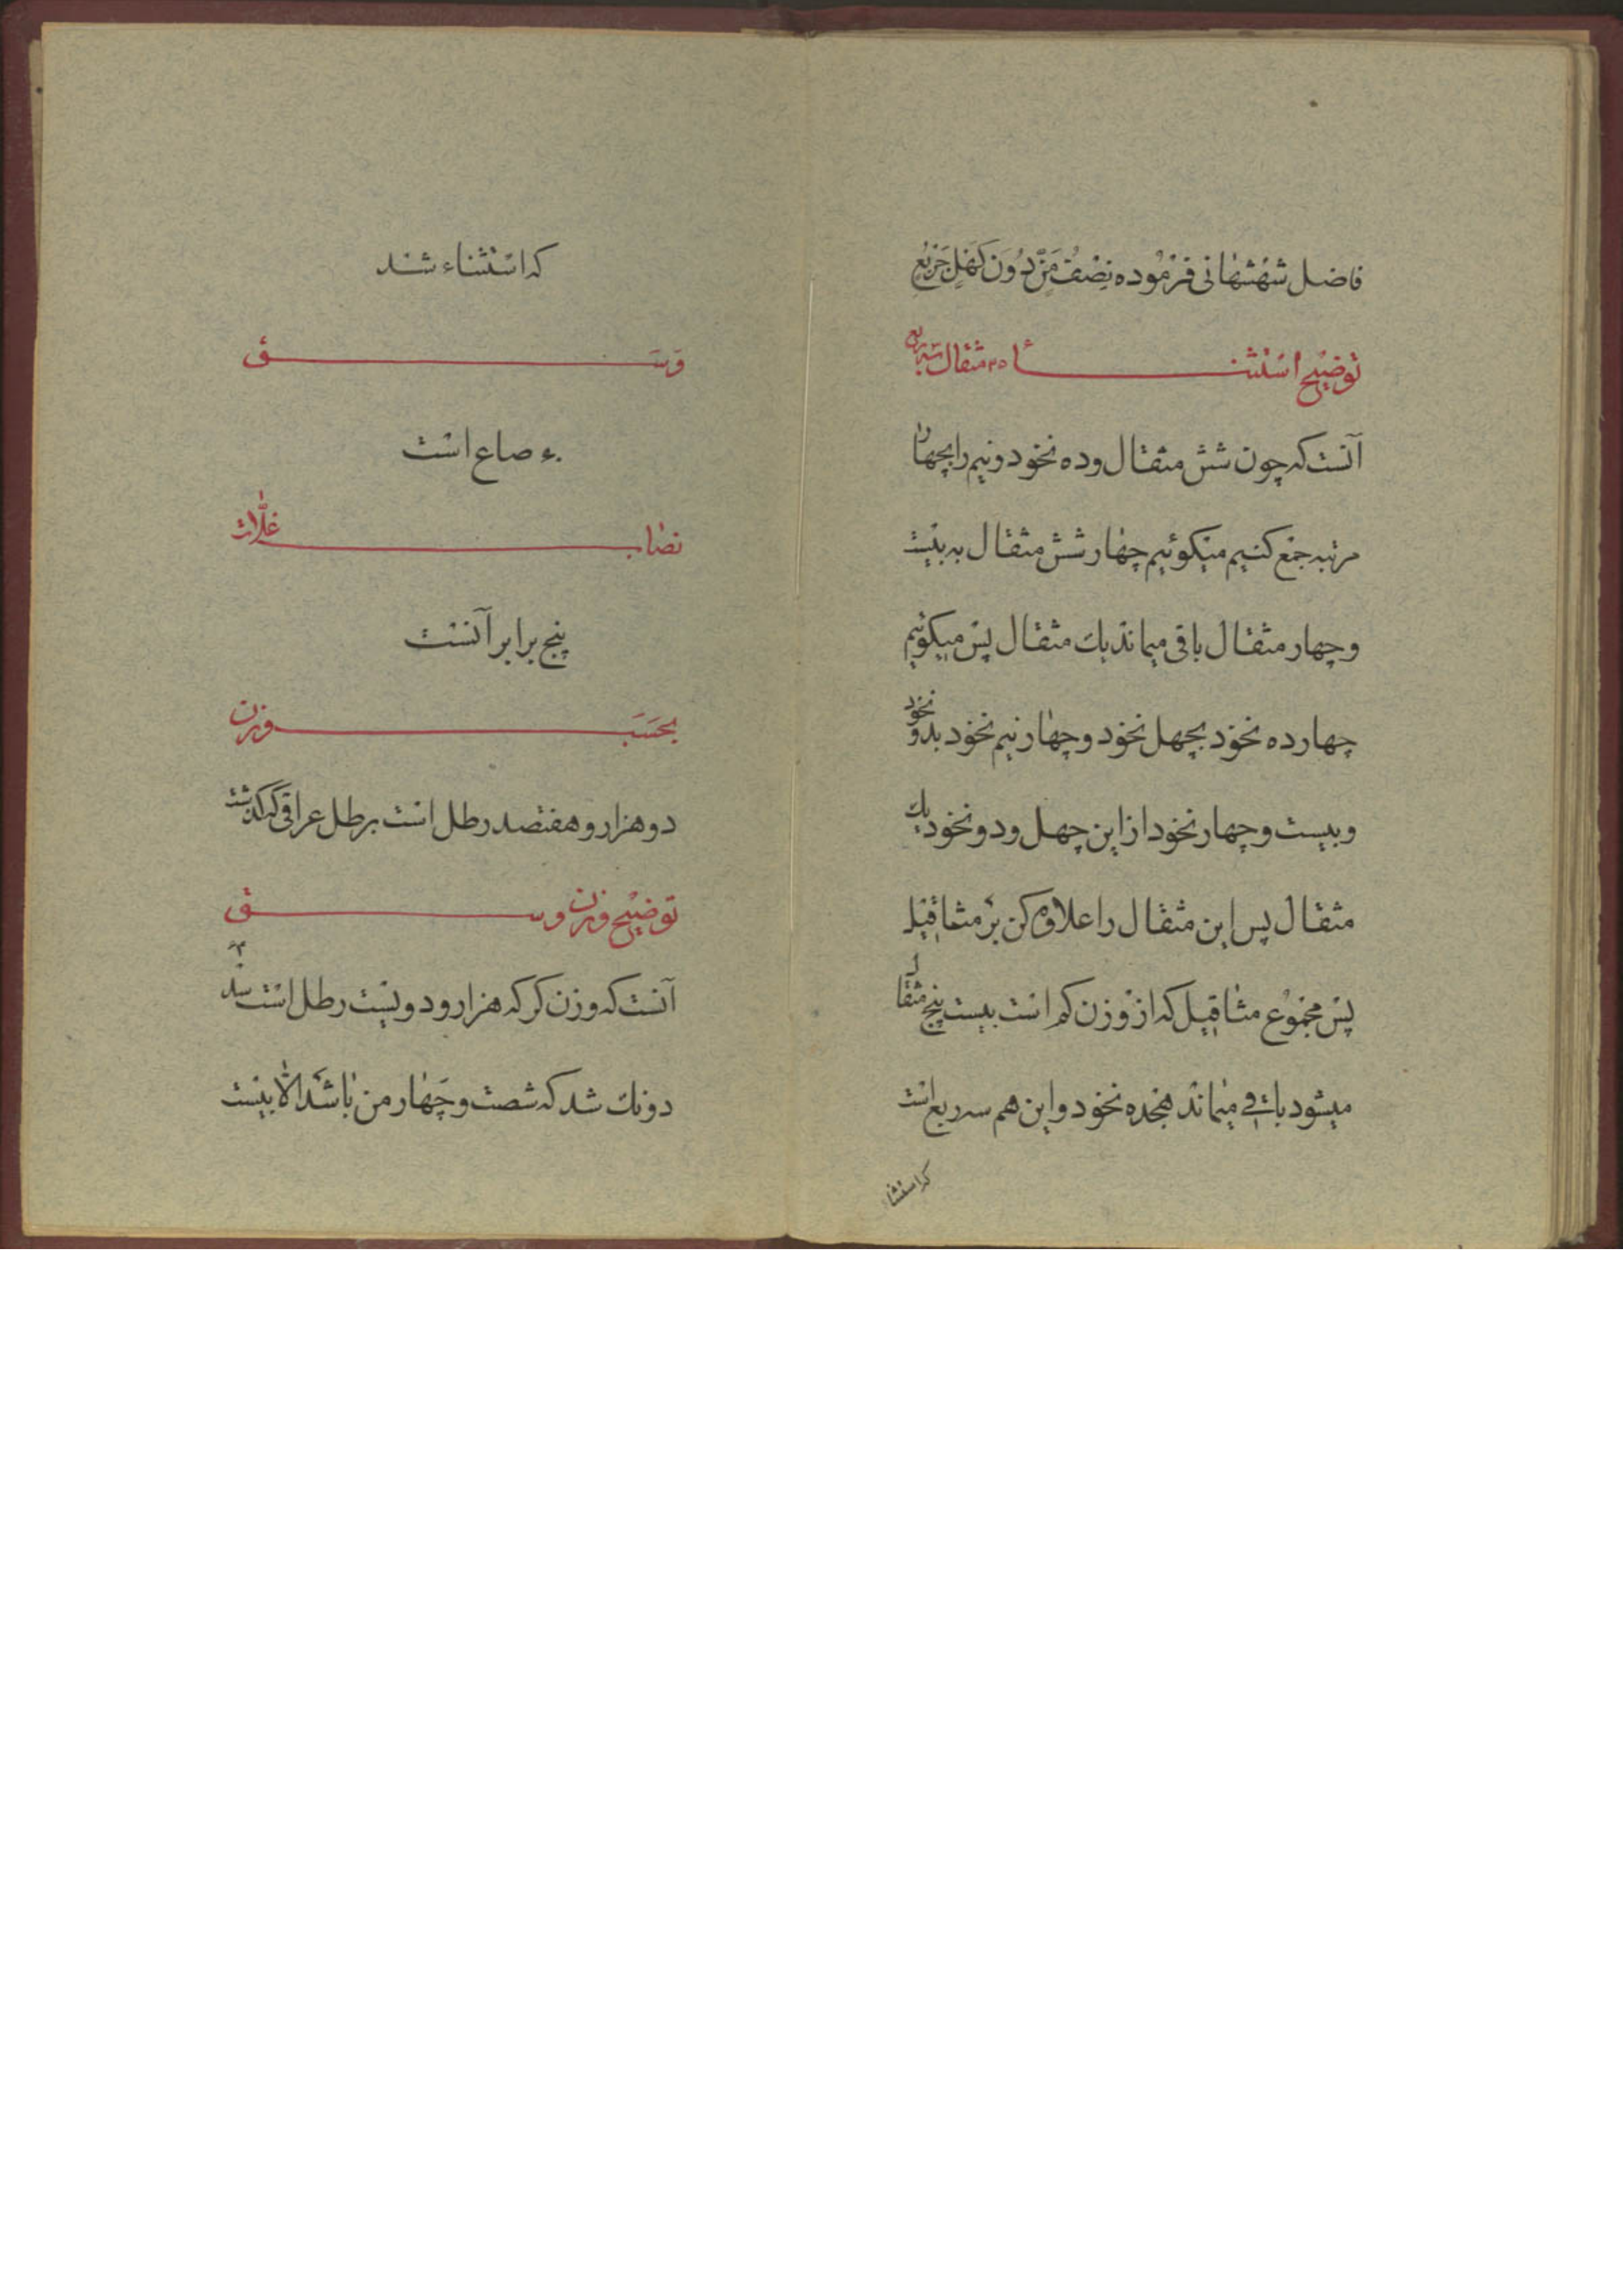 فاضل شهشهانی فرموده نصف من دون کهل جزیع
توضیح استثناء ۲۵ مثقال سه ربع
آنست که چون شش مثقال وده نخود ونیم را بچهار
مرتبه جمع کنیم میکوئیم چهار شش مثقال به بیست
وچهار مثقال باقی میماند یک مثقال پس میکوئیم
چهار ده نخود بچهل نخود وچهار نیم نخود بدو نخود
وبیست وچهار نخود از این چهل ودو نخود یک
مثقال پس این مثقال را علاوه کن بر مثاقیل
پس مجموع مثاقیل که از وزن کم است بیست پنج مثقال
میشود باقی میماند هجده نخود واین هم سه ربع است
که استثناء
که استثناء شد
وسق
۶۰ صاع است
نصاب غلّات
پنج برابر آنست
بحسب وزن
دو هزار و هفتصد رطل است برطل عراقی که گذشت
توضیح وزن وسق
آنست که وزن کر که هزار ودویست رطل است
دونک شد که شصت وچهار من باشد الّا بیست